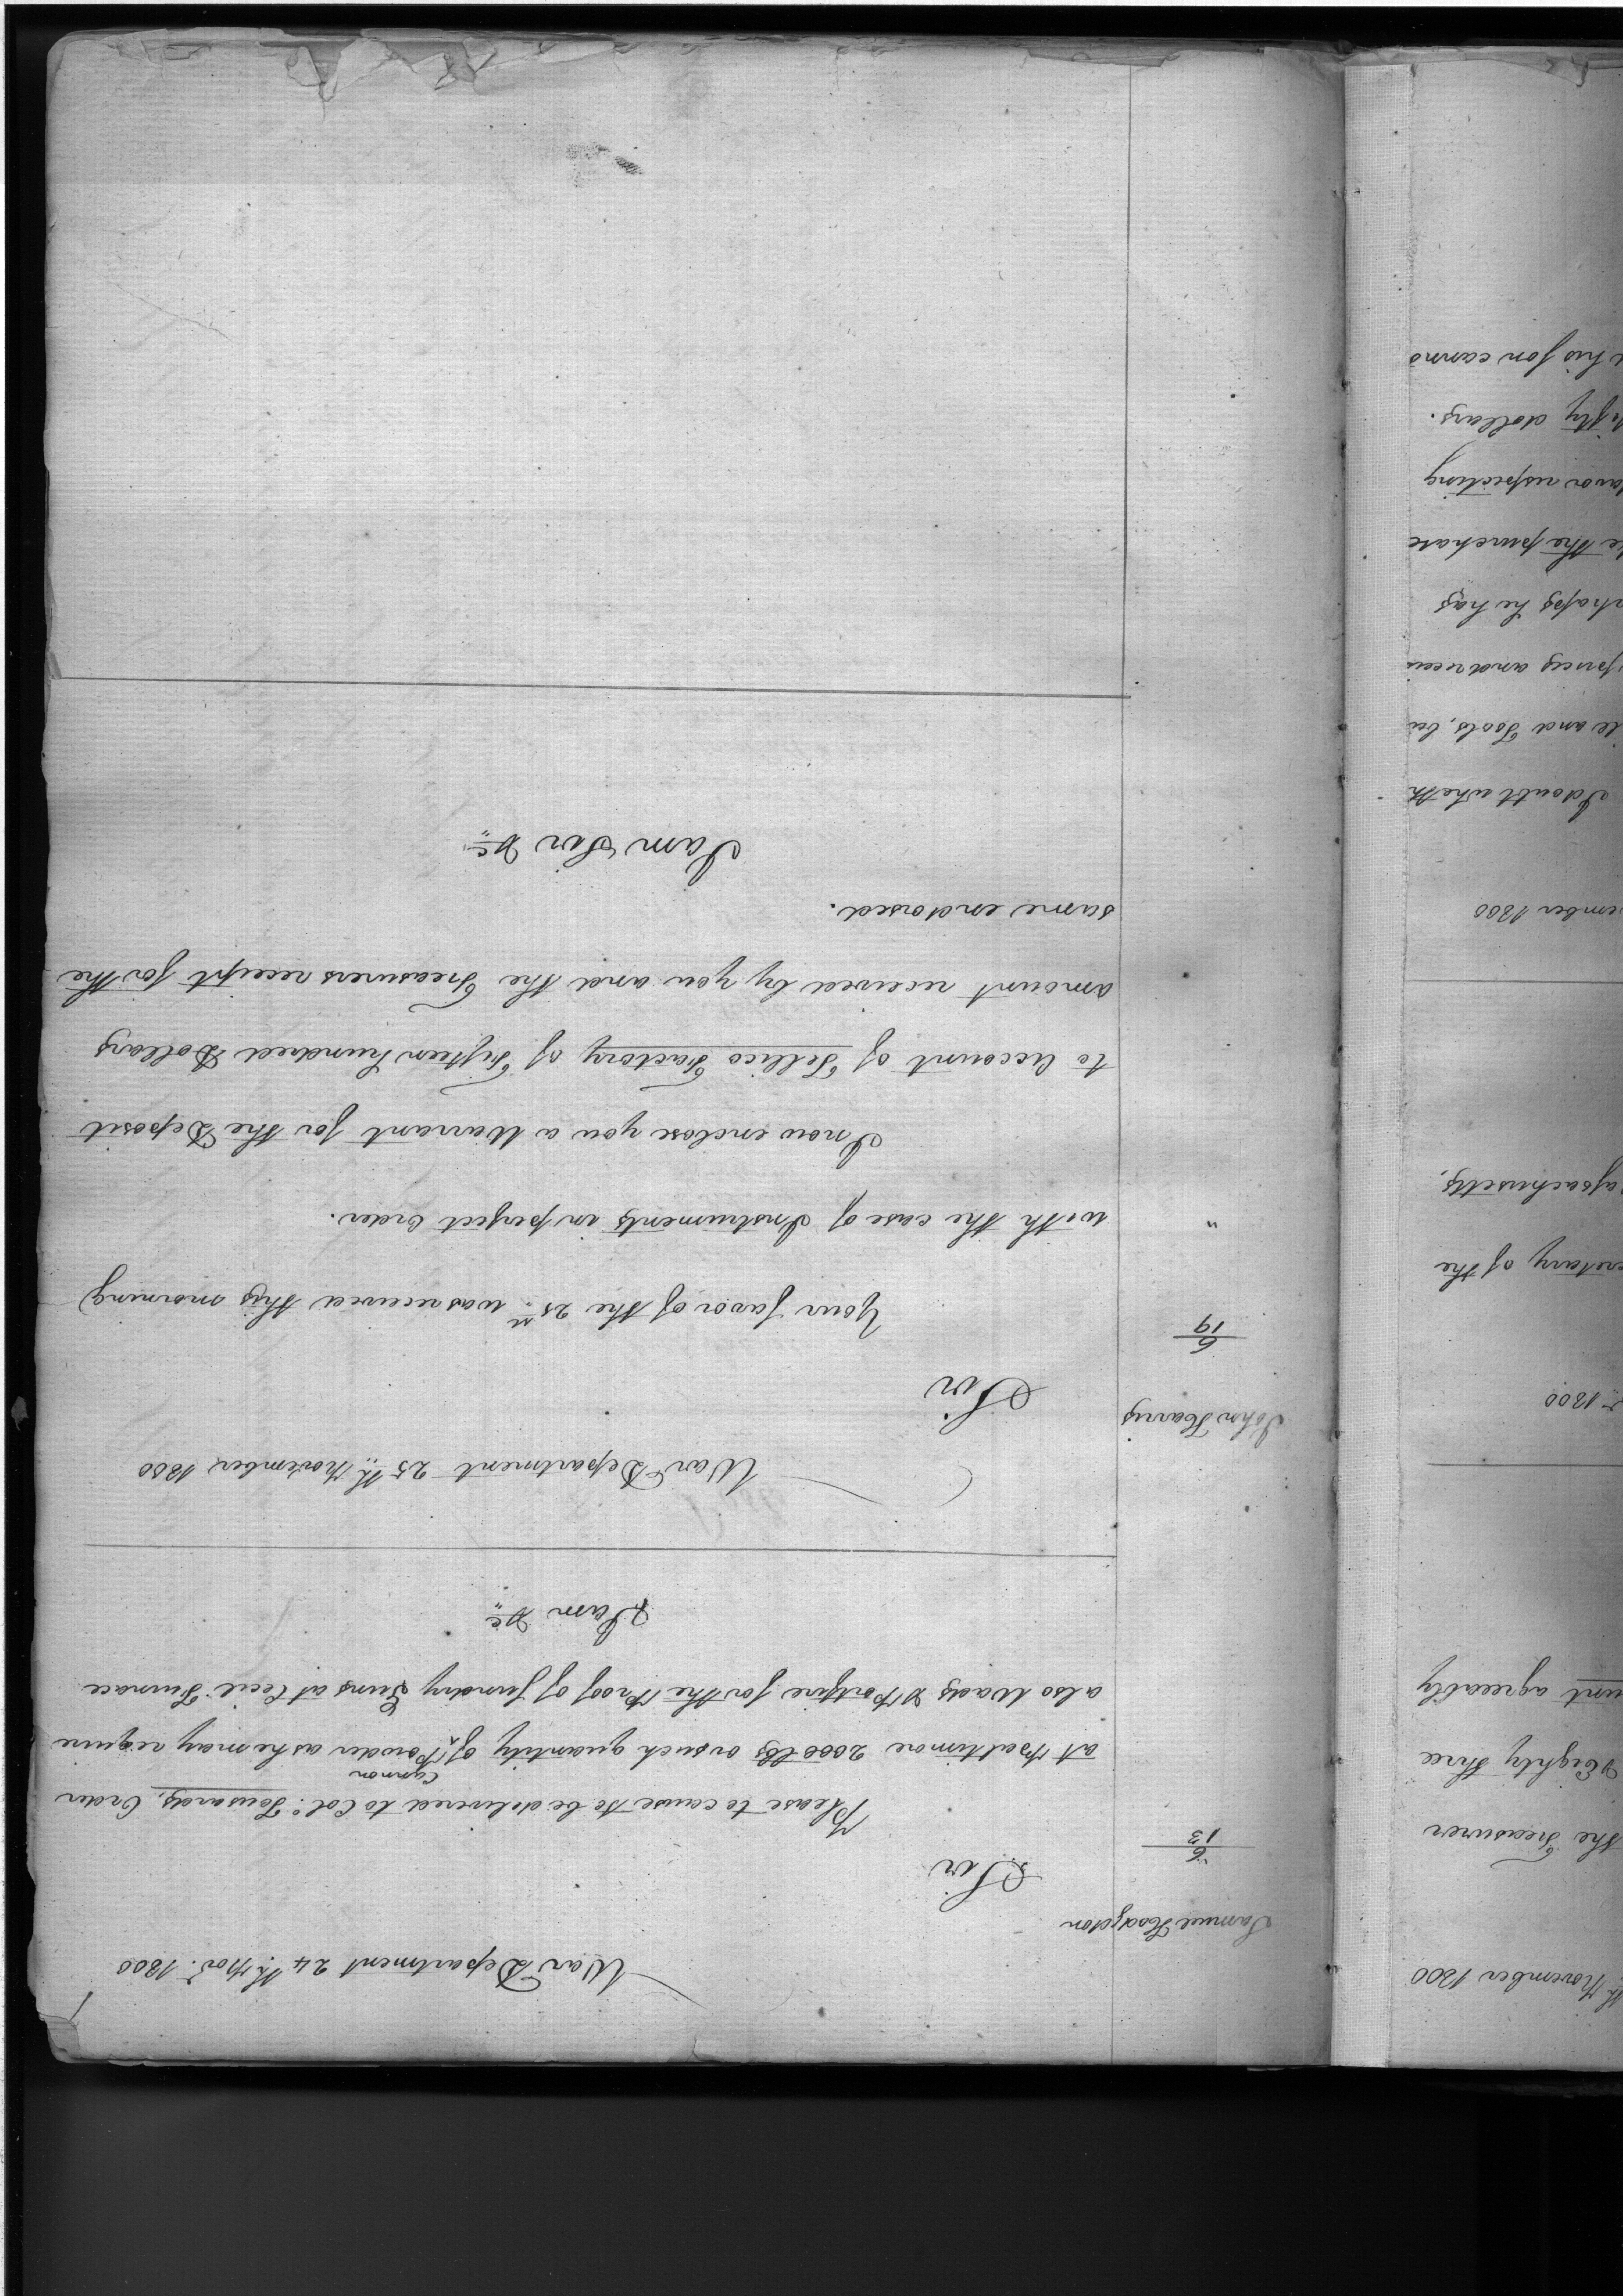 War Department 24th. Novr. 1800
Samuel Hodgdon
Sir
6
13
Please to cause to be delivered to Colo. Tousards, Order
Cannon
at Baltimore 2000 lbs or such quantity of ^ Powder as he may require
also Wads & Portfire for the Proof of sundry Guns at Cecil Furnace
I am &c
War Department 25th November 1800
John Harris
Sir
6
19
Your favor of the 25th was received this morning
" with the case of Instruments in perfect Order.
I now enclose you a Warrant for the Deposit
to Account of Tellico Factory of Fifteen hundred Dollars
amount received by you and the Treasurers receipt for the
same endorsed.
I am Sir &c
th November 1800
the Treasurer
& Eighty three
agreeably
1800
of the
1800
I doubt wheth
and Tools, bu
he has
the purchase
respecting
dollars.
his son